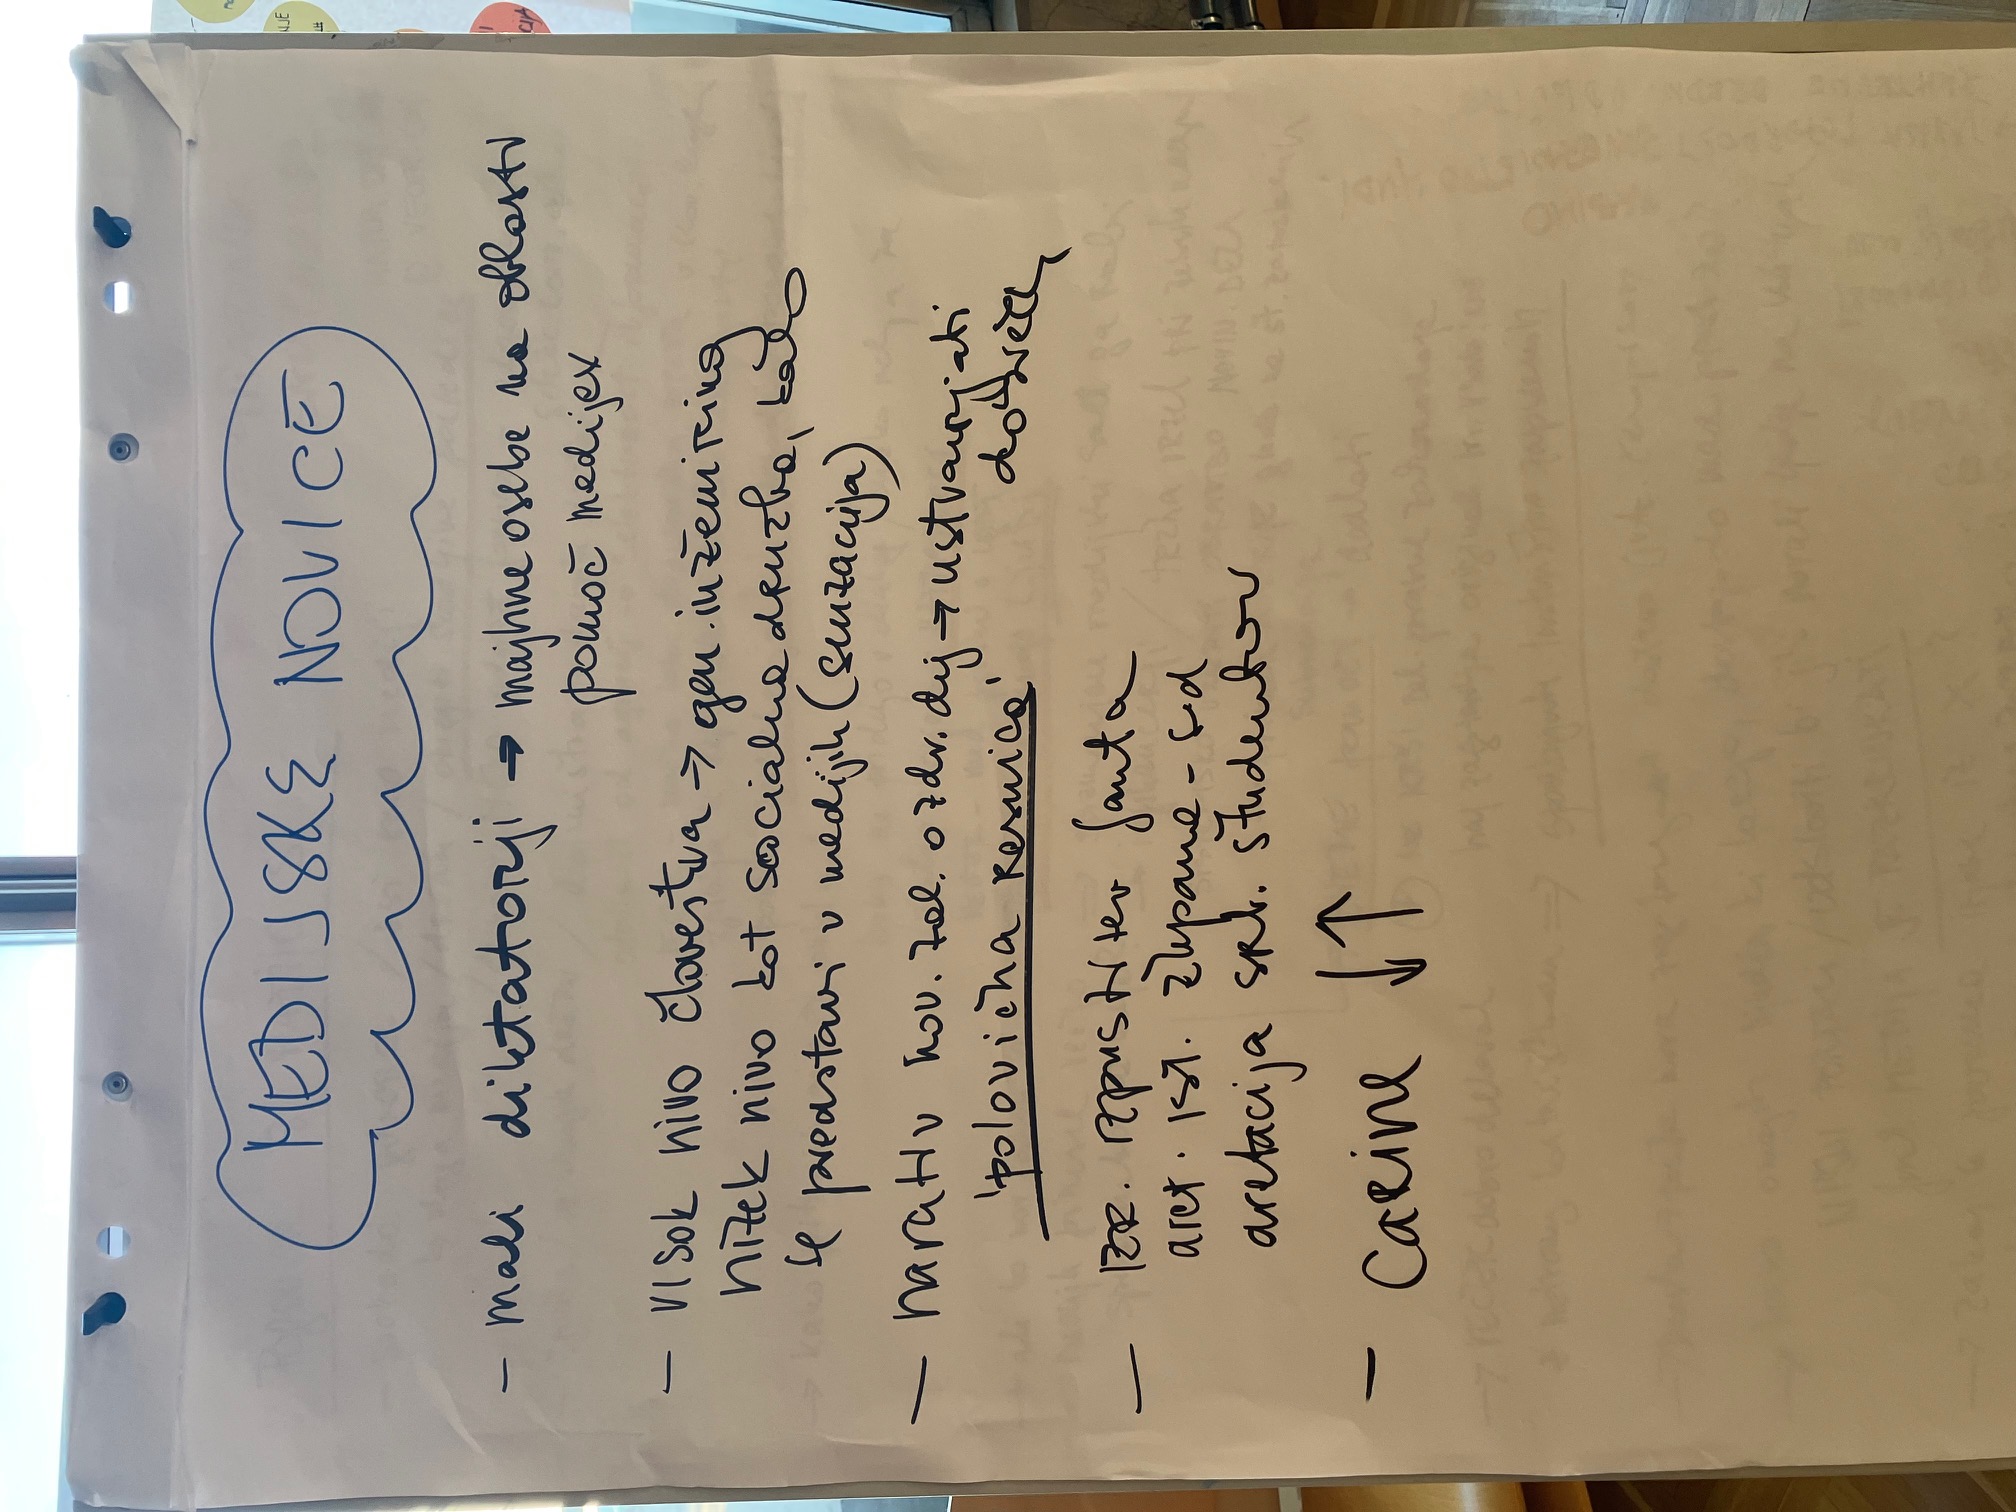 MEDIJSKE NOVICE
- mali diktatorji → majhne osebe na oblasti
pomoč medijev
- visok nivo človeštva → gen. inženiring
nizek nivo kot socialna družba, kako
se predstavi v medijih (senzacija)
- narativ nov. zal. o zdr. dij → ustvarjati
'polovična resnica'
- izr. izpustitev fanta
aret. ist. župane - srd
aretacija srb. študentov
- Carine ↓↑